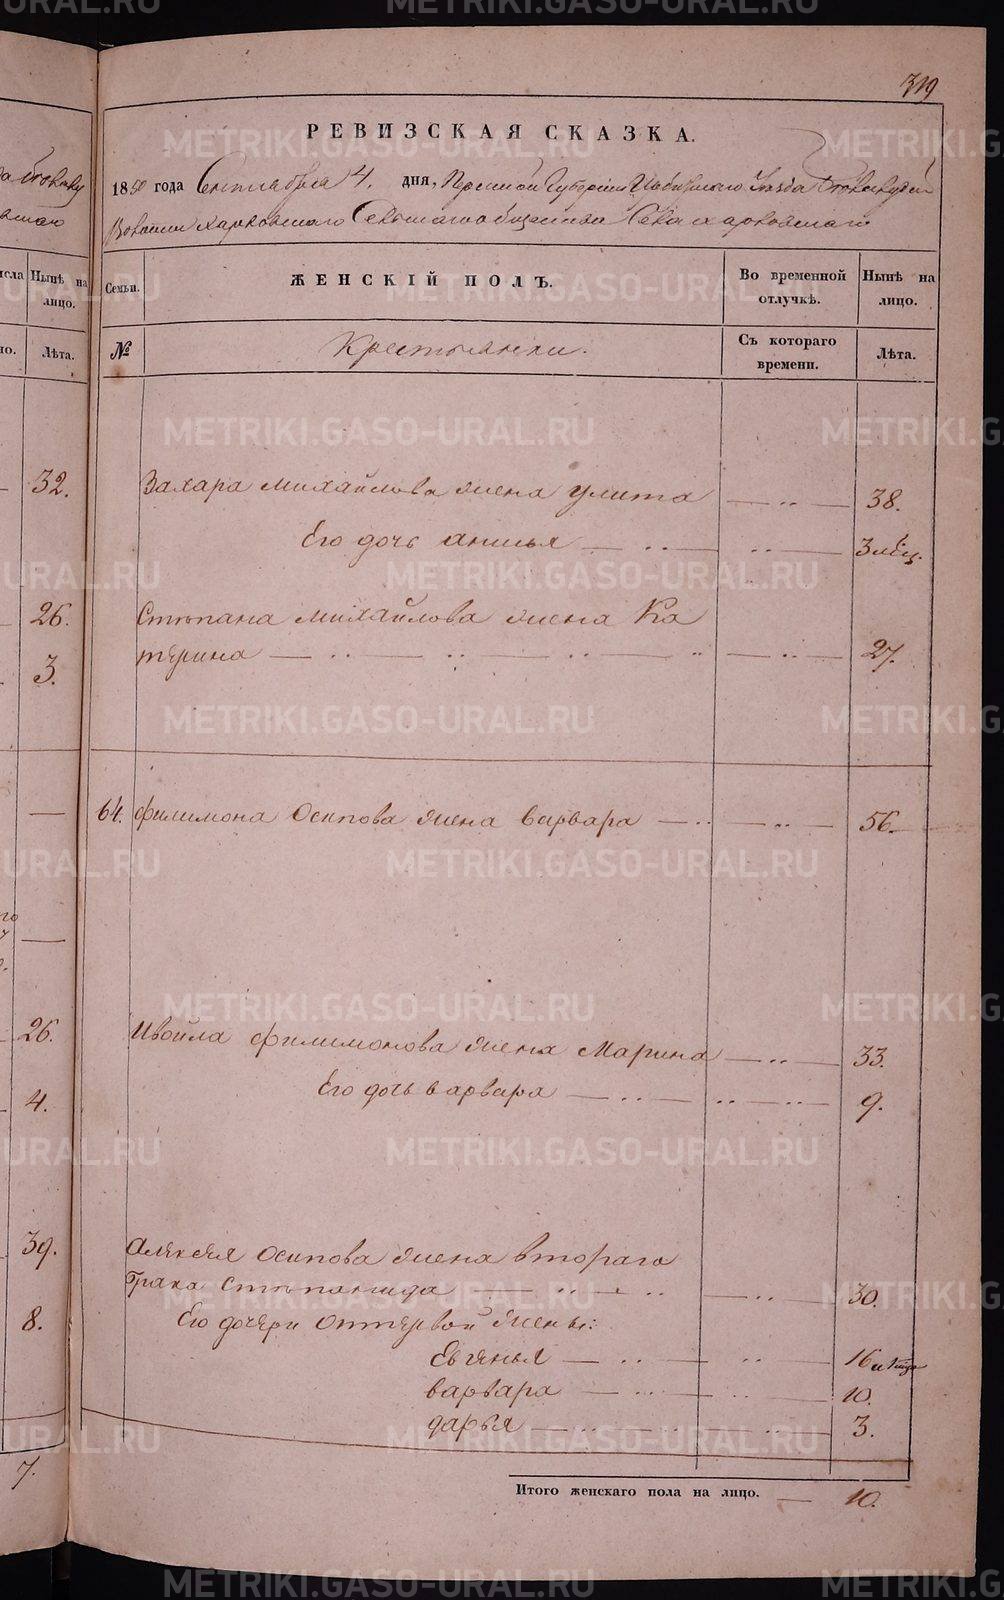 319
РЕВИЗСКАЯ СКАЗКА.
1850 года Сентября 4. дня, Пермской Губернии Уѣзда
Волости Харковскаго Сельскаго общества Села Харковскаго
Семьи. ЖЕНСКІЙ ПОЛЪ. Во временной отлучкѣ. Нынѣ на лицо.
№ Крестьянки. Съ котораго времени. Лѣта.
Захара Михайлова жена Улита — .. — 38.
Его дочь Анисья — .. — .. — 3 мѣц.
Стѣпана Михайлова жена Ка
терина — .. — .. — .. — .. — .. — 27.
64. Филимона Осипова жена Варвара — .. — .. — 56.
Ивойла Филимонова жена Марина — .. — 33.
Его дочь Варвара — .. — .. — .. — 9.
Алексея Осипова жена втораго
брака Стѣпанида — .. — .. — .. — 30.
Его дочери от первой жены:
Евгенья — .. — .. — 16
Варвара — .. — .. — 10.
Дарья — .. — .. — 3.
Итого женскаго пола на лицо. — 10.
Нынѣ на лицо.
Лѣта.
32.
26.
3.
26.
4.
39.
8.
7.
METRIKI.GASO-URAL.RU